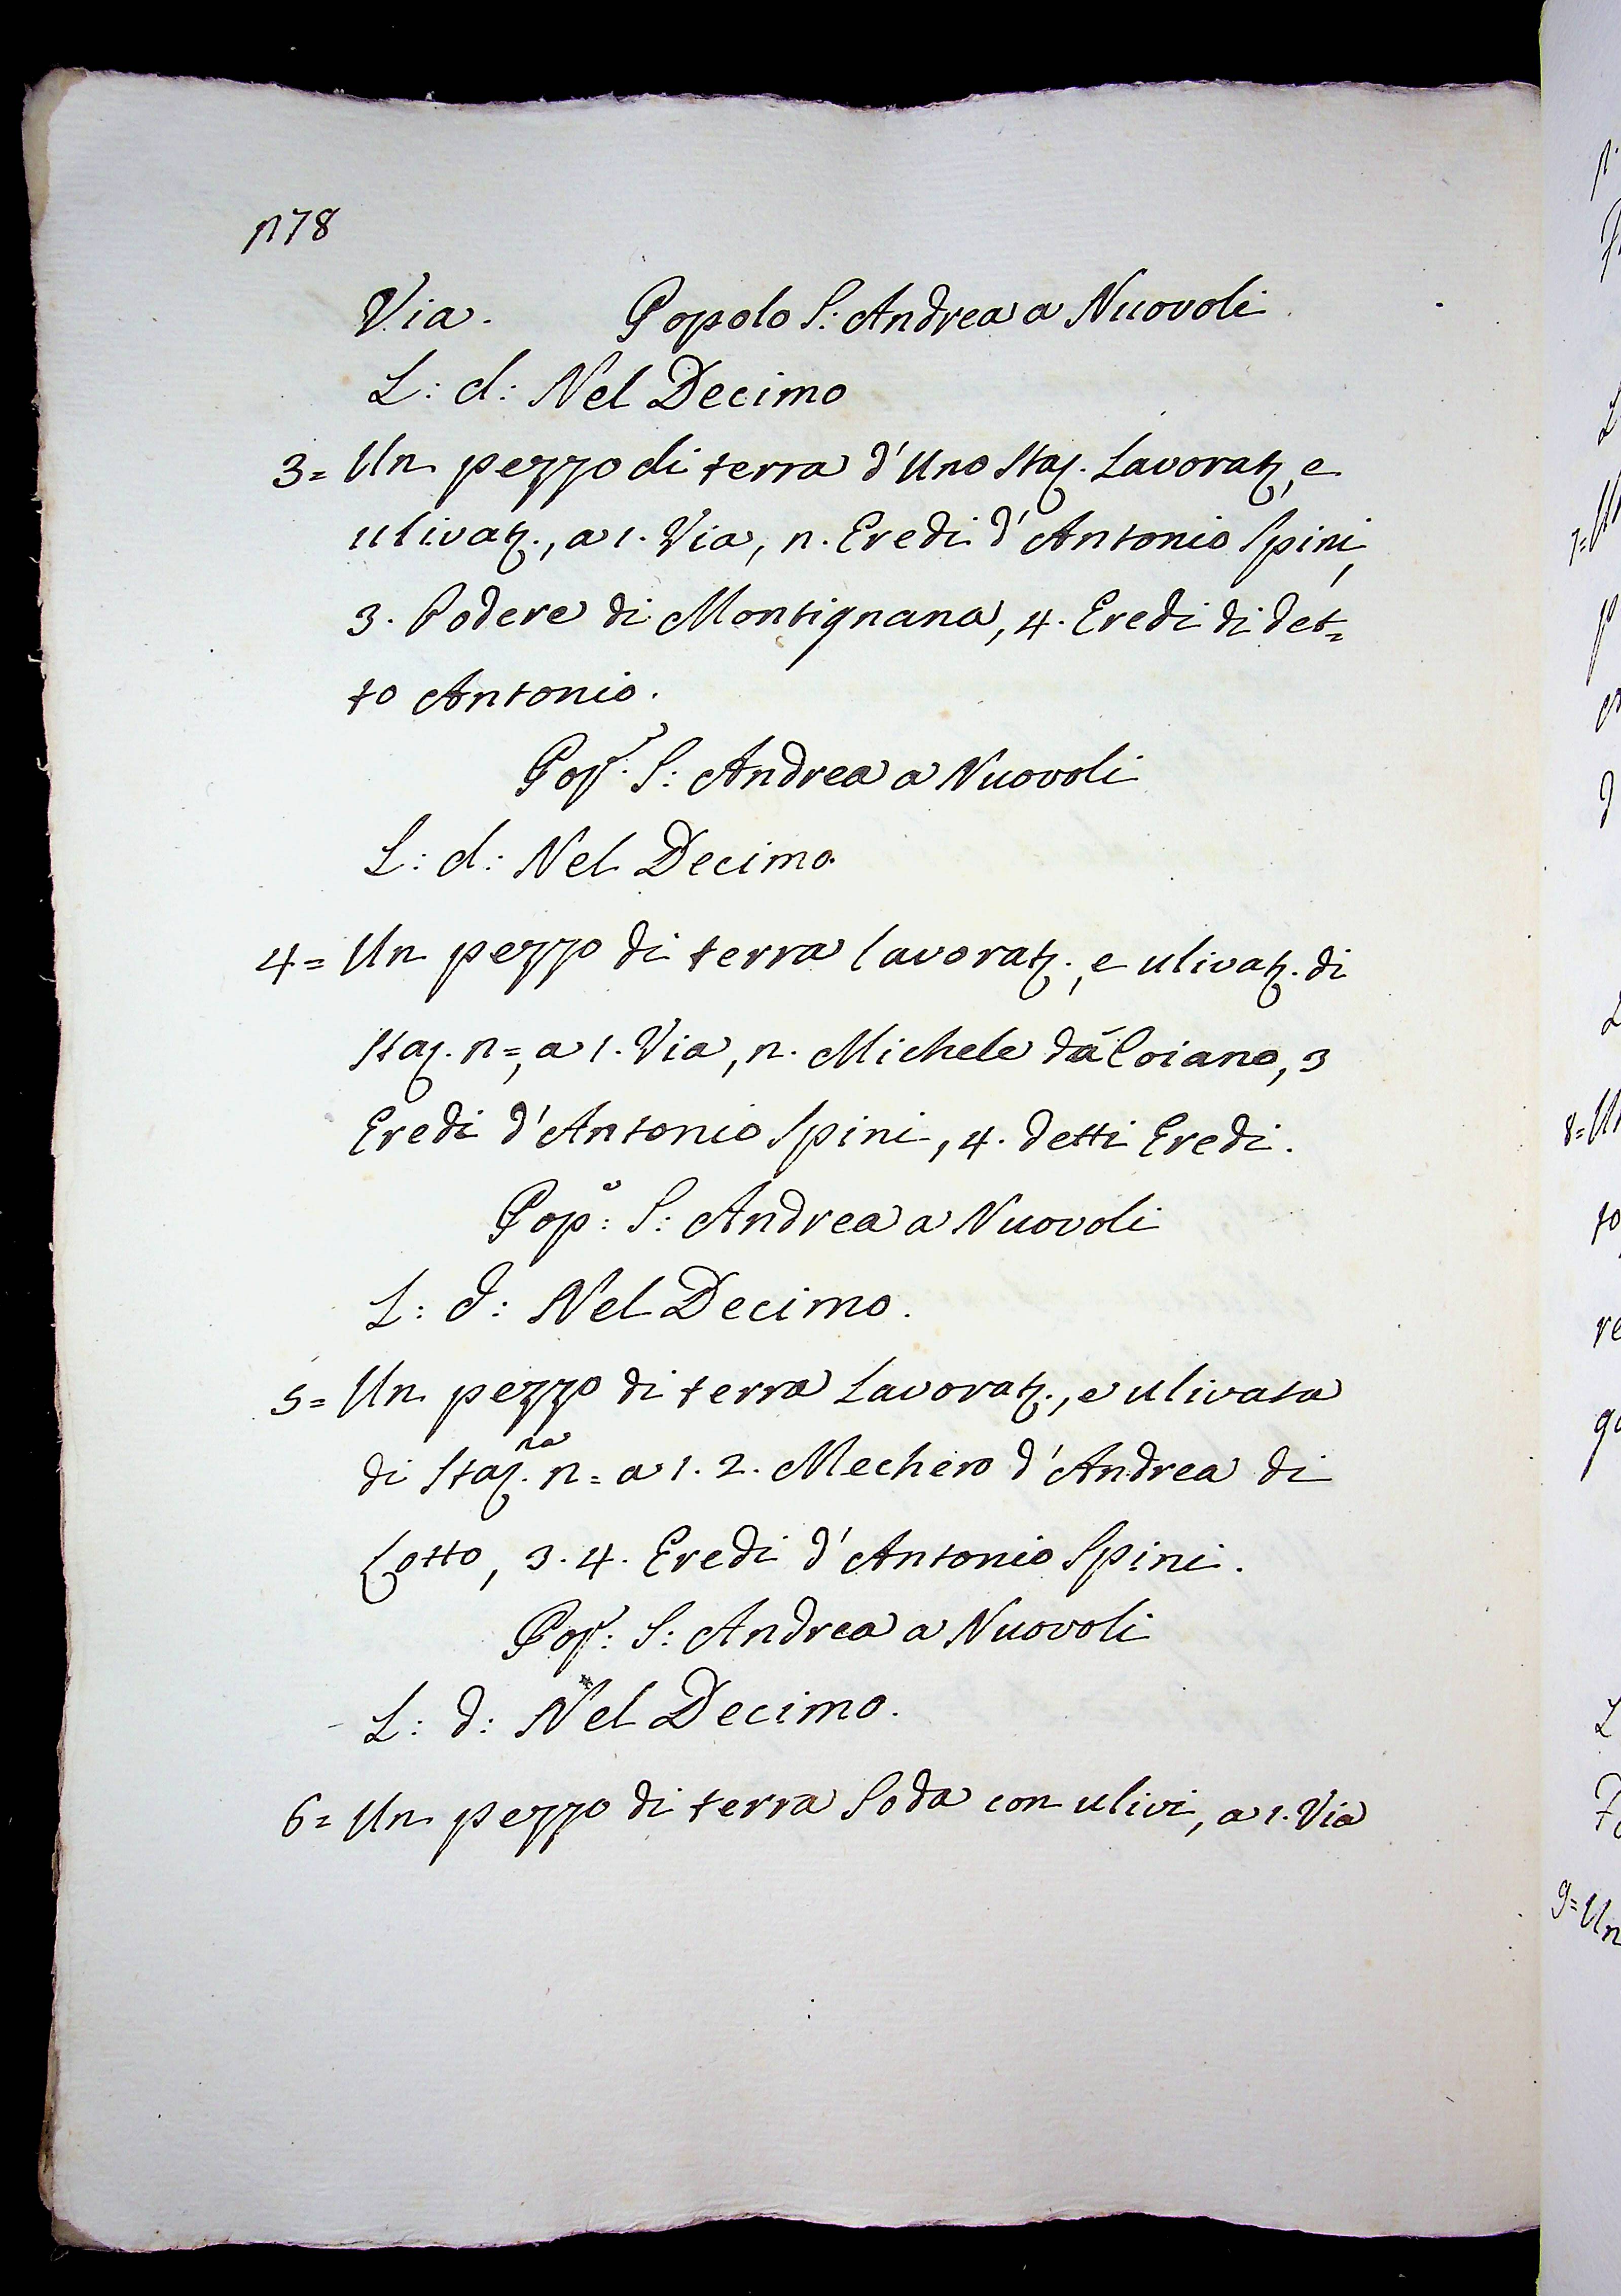 178
Via. Popolo S: Andrea a Nuovoli
L: d: Nel Decimo
3= Un pezzo di terra d'Uno Staj. Lavoratz, e
ulivatz., a 1. Via, n. Eredi d'Antonio Spini,
3. Podere di Montignana, 4. Eredi di det=
to Antonio.
Pop. S: Andrea a Nuovoli
L: d: Nel Decimo.
4= Un pezzo di terra lavoratz., e ulivatz. di
Staj. n=, a 1. Via, n. Michele da Coiano, 3
Eredi d'Antonio Spini, 4. detti Eredi.
Popº: S: Andrea a Nuovoli
L: d: Nel Decimo.
5= Un pezzo di terra Lavoratz., e ulivata
di Staj.na n= a 1. 2. Mechero d'Andrea di
Cotto, 3. 4. Eredi d'Antonio Spini.
Pop: S: Andrea a Nuovoli
L: d: Nel Decimo.
6= Un pezzo di terra Soda con ulivi, a 1. Via
7=
8= Un
9= Un